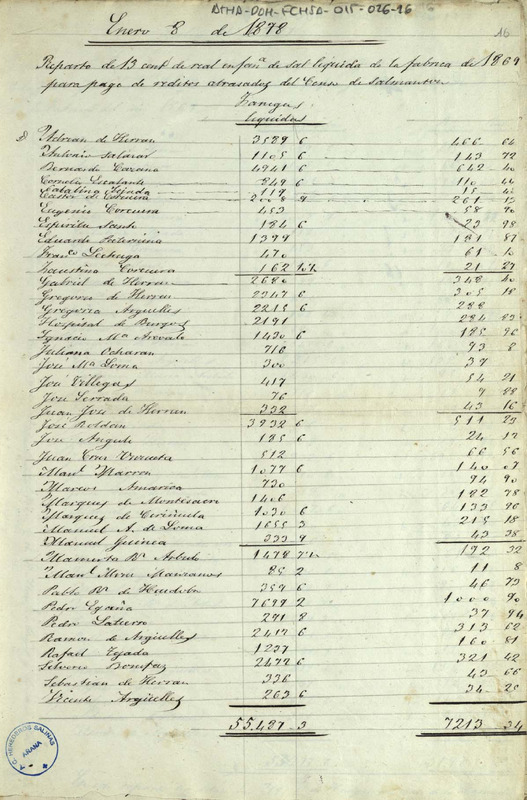 ATHA-DOH-FCHSA-015-026-16
Enero 8 de 1878
16
Reparto de 13 cent. de real en fan.ª de sal líquida de la fabrica de 1869
para pago de reditos atrasados del Censo de Salmanton
Fanegas
líquidas
Adrian de Herran 3589 6 466 64
Alvaro Salazar 1105 6 143 72
Bernardo Corcuera 4941 6 642 40
Cornelio Escalante 849 6 110 44
Catalina Tejada 119 15 48
Castor de Corcuera 2008 9 261 13
Eugenio Corcuera 453 58 90
Espiritu Santo 184 6 23 98
Eduardo Salerina 1399 181 87
Fran.co Lechuga 470 61 10
Faustino Corcuera 162 21 27
Gabriel de Herran 2680 348 40
Gregorio de Herran 2347 6 305 18
Gregoria Arguelles 2215 6 288
Hospital de Burgos 2191 284 83
Ignacio M.ª Arevalo 1430 6 185 96
Juliana Ocharan 716 93 8
Jose M.ª Loma 300 39
Jose Villegas 417 54 21
Jose Serrada 76 9 88
Juan Jose de Herran 332 43 16
José Roldan 3932 6 511 23
Jose Angulo 185 6 24 12
Juan Cruz 512 66 56
Man.l Marron 1077 6 140 07
Marcos Amarica 730 94 90
Marques de Montesacro 1406 182 78
Marquez de Ciriñuela 1030 6 133 90
Manuel A. de Loma 1655 3 215 18
Manuel Guinea 333 9 43 38
Mamerta R.z Arbulo 1479 192 32
Man.l Manzanos 85 2 11 8
Pablo R.z de Huidobro 359 6 46 73
Pedro Egaña 7699 2 1000 90
Pedro Latierro 291 8 37 94
Ramon de Argüelles 2417 6 313 62
Rafael Tejada 1237 160 81
Silverio Bonifaz 2472 6 321 42
Sebastian de Herran 336 43 66
Vicente Argüelles 263 6 34 25
55.487 3 7213 34
A.C. HEREDEROS SALINAS
ARAÑA